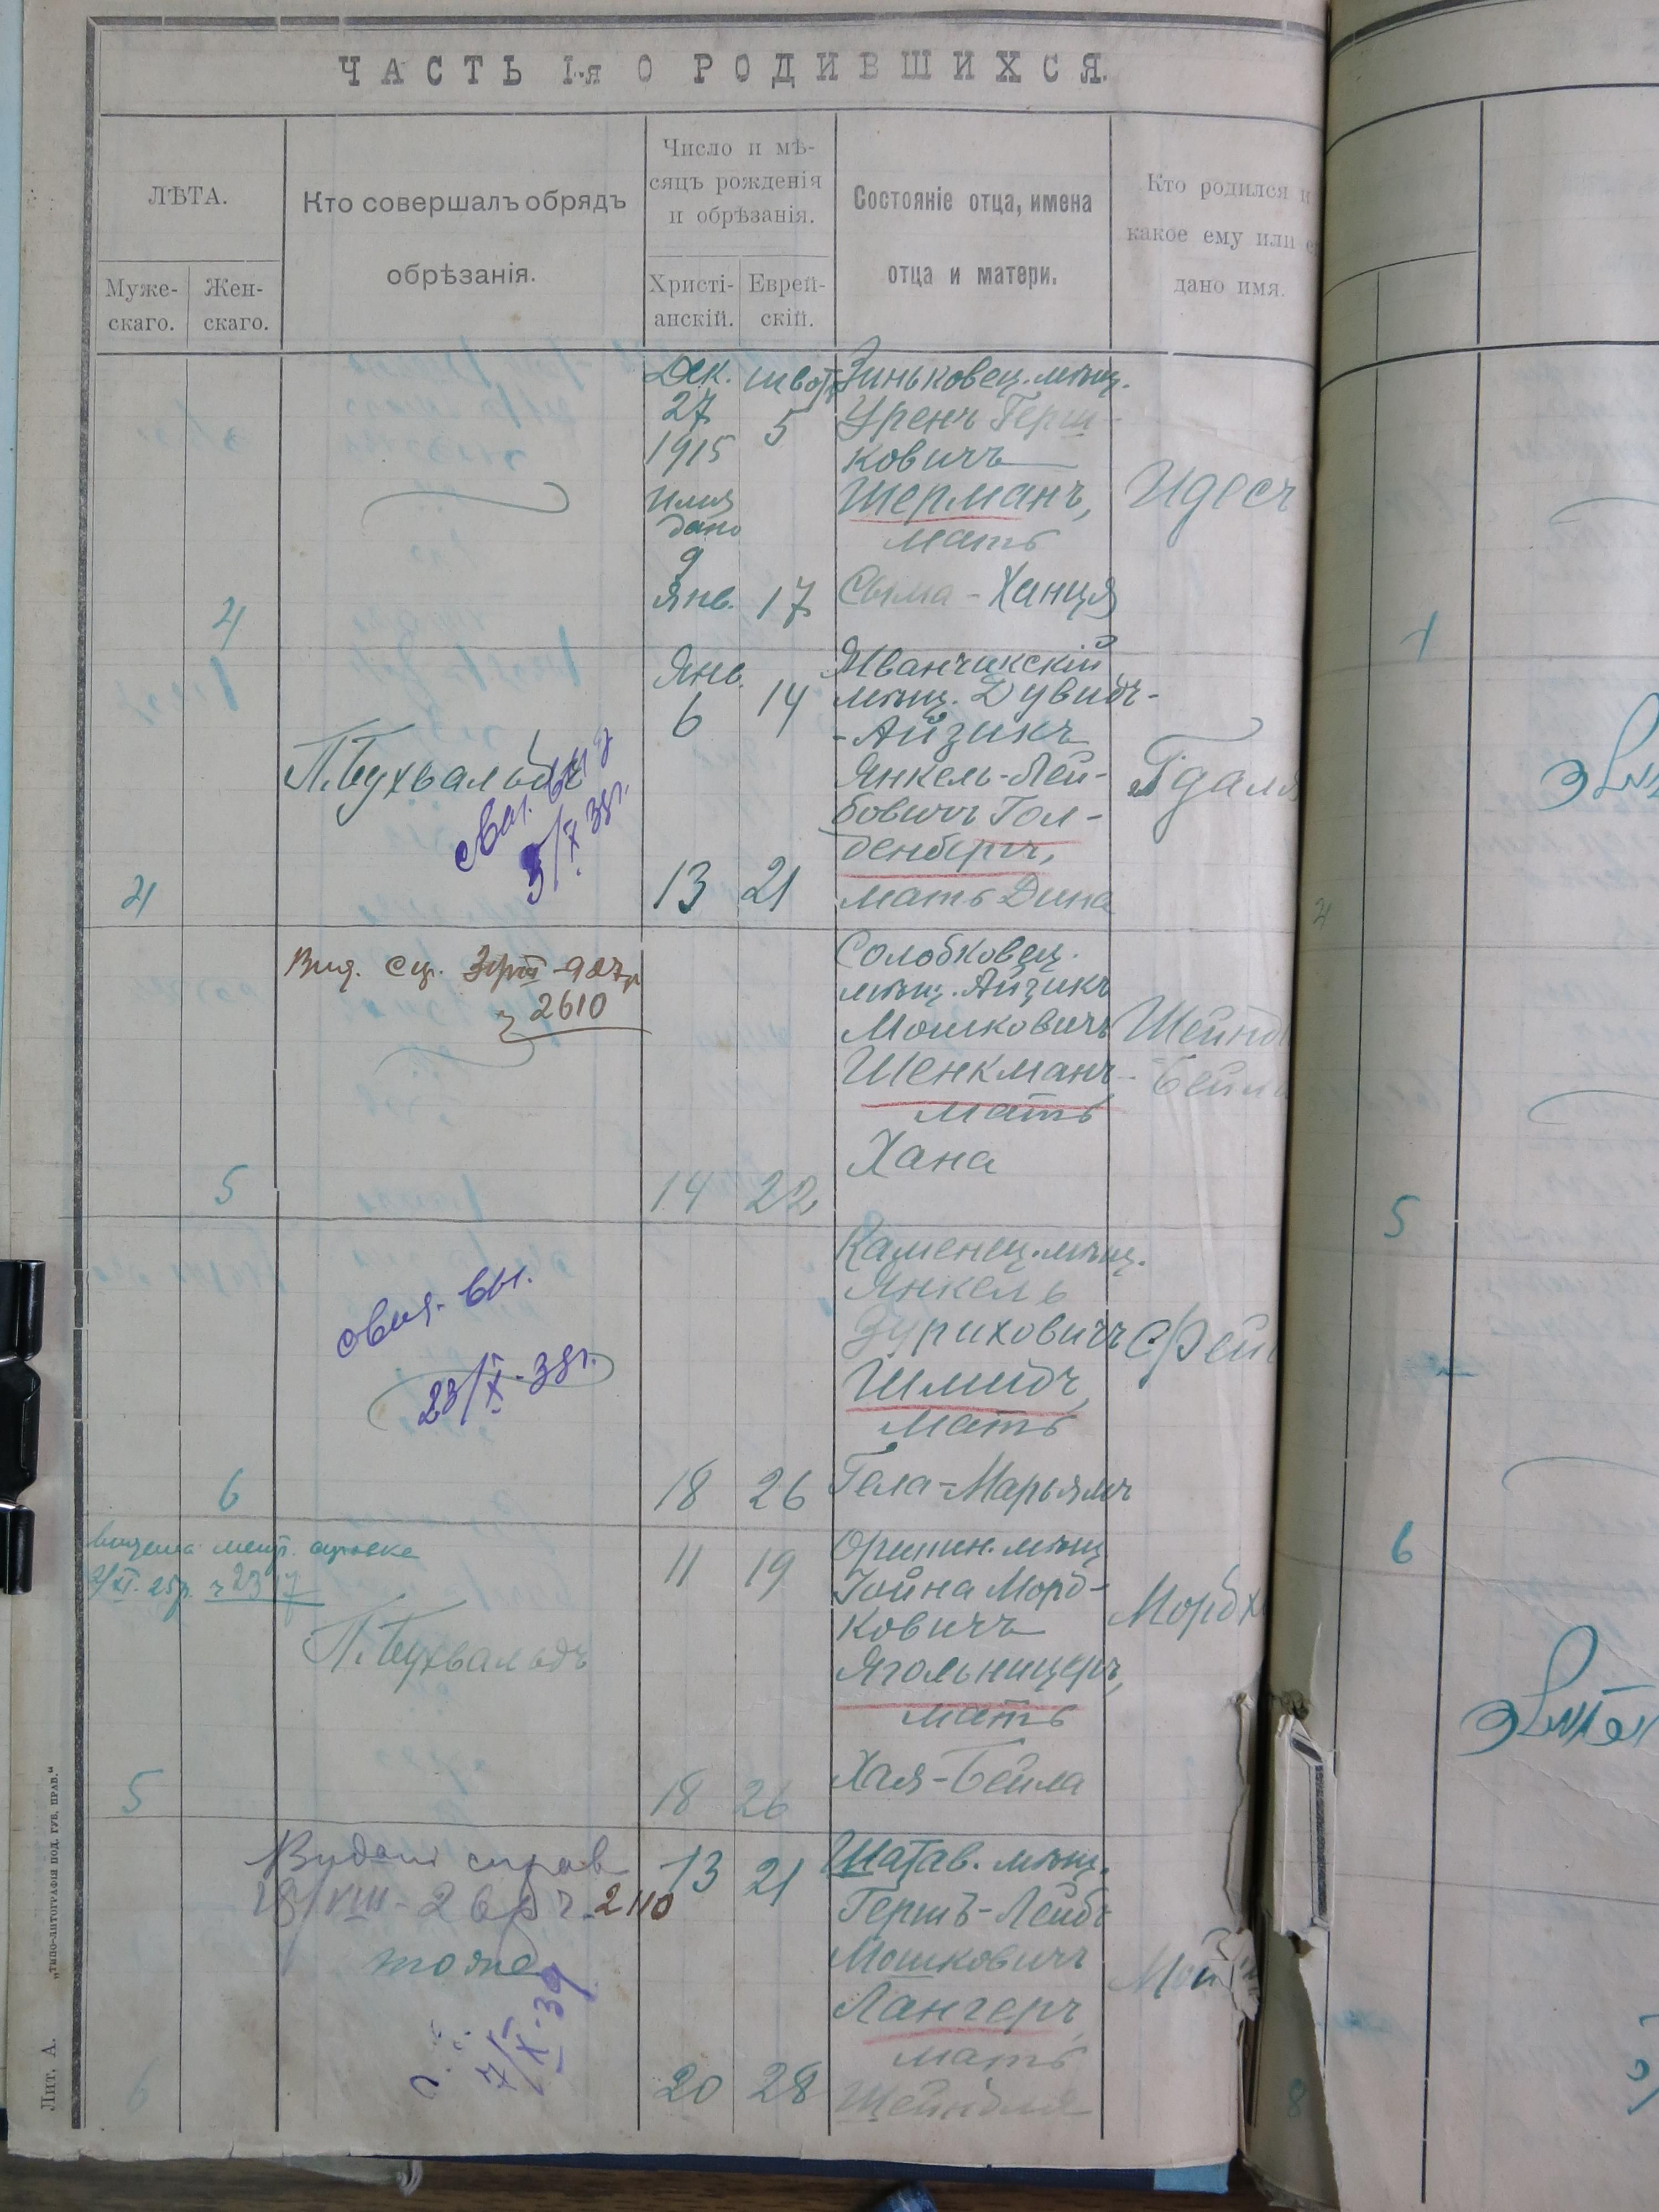 ЧАСТЬ I-я О РОДИВШИХСЯ.
ЛѢТА.
Муже-
скаго.
Жен-
скаго.
Кто совершалъ обрядъ
обрѣзанія.
Число и мѣ-
сяцъ рожденія
и обрѣзанія.
Христі-
анскій.
Еврей-
скій.
Состояніе отца, имена
отца и матери.
Кто родился и
какое ему или е
дано имя.
4
Дек.
27
1915
имя
дано
9
Янв.
5
17
Зиньковец. мѣщ.
Герш-
ковичъ
Шерманъ,
мать
Сыма-Ханця
Идесъ
4
П. Бухвальдъ
5/X 38г.
Янв.
6
13
14
21
мѣщ. Дувидъ-
-Айзикъ
Янкель-Лей-
бовичъ Гол-
денбергъ,
мать Дина
Гдаля
5
2610
14
22
Солобковец.
мѣщ. Айзикъ
Мошковичъ
Шенкманъ
мать
Хана
Шейнд
Бейл
6
свид. выд.
23/X-38г.
18
26
Каменец. мѣщ.
Янкель
Зуриховичъ
Шмидъ,
мать
Гела-Марьямъ
Фей
5
2317
П. Бухвальдъ
11
18
19
26
Оринин. мѣщ.
Іойна Морд-
ковичъ
Ягольницеръ,
мать
Хая-Бейла
Мордх
6
2110
тоже
7/X-39
13
20
21
28
Шатав. мѣщ.
Гершъ-Лейбъ
Мошковичъ
Лангеръ,
мать
Шейндля
Лит. А.
„типо-литографія под. губ. прав.“
5
6
8